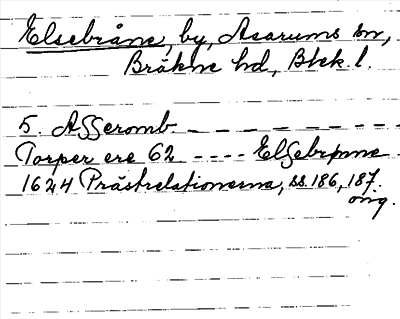 Elsebråne, by, Asarums sn,
Bräkne hd, Blek. l.
5. Asseromb. – – – – – – – –
Torper ere 62 – – – – Elsebrpnne
1624 Prästrelationerna, ss. 186, 187.
orig.